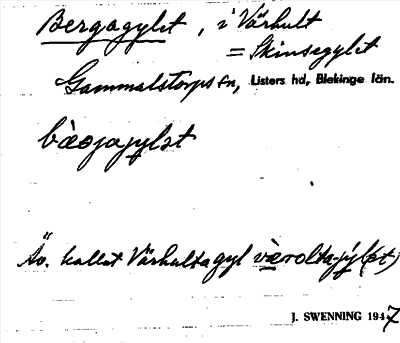 Bergagylet, i Värhult
= Skinsagylet
Gammalstorps sn, Listers hd, Blekinge län.
bàrgajylət
Äv. kallat Värhultagyl værolta-jýl(ət)
J. SWENNING 1947